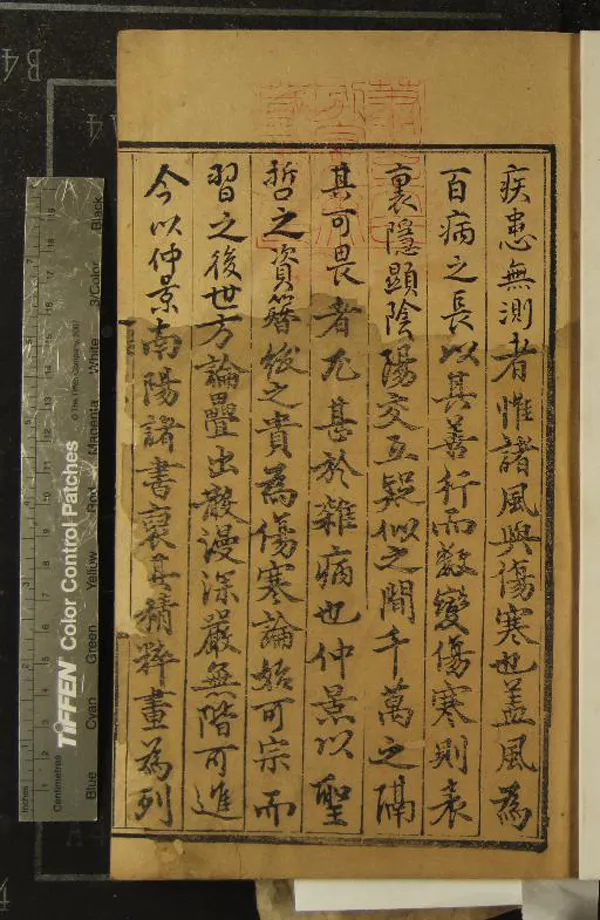 疾患無測者惟諸風與傷寒也盖風為
百病之長以其善行而數變傷寒則表
裏隱顯陰陽交互疑似之間千萬之隔
其可畏者尤甚於雜病也仲景以聖
哲之資簪紱之貴為傷寒論始可宗而
習之後世方論疊出散漫深嚴無階可進
今以仲景南陽諸書裒其精粹畫為列
B4
A4
TIFFEN Color Control Patches
© The Tiffen Company, 2007
Blue Cyan Green Yellow Red Magenta White 3/Color Black
Inches
Centimetres